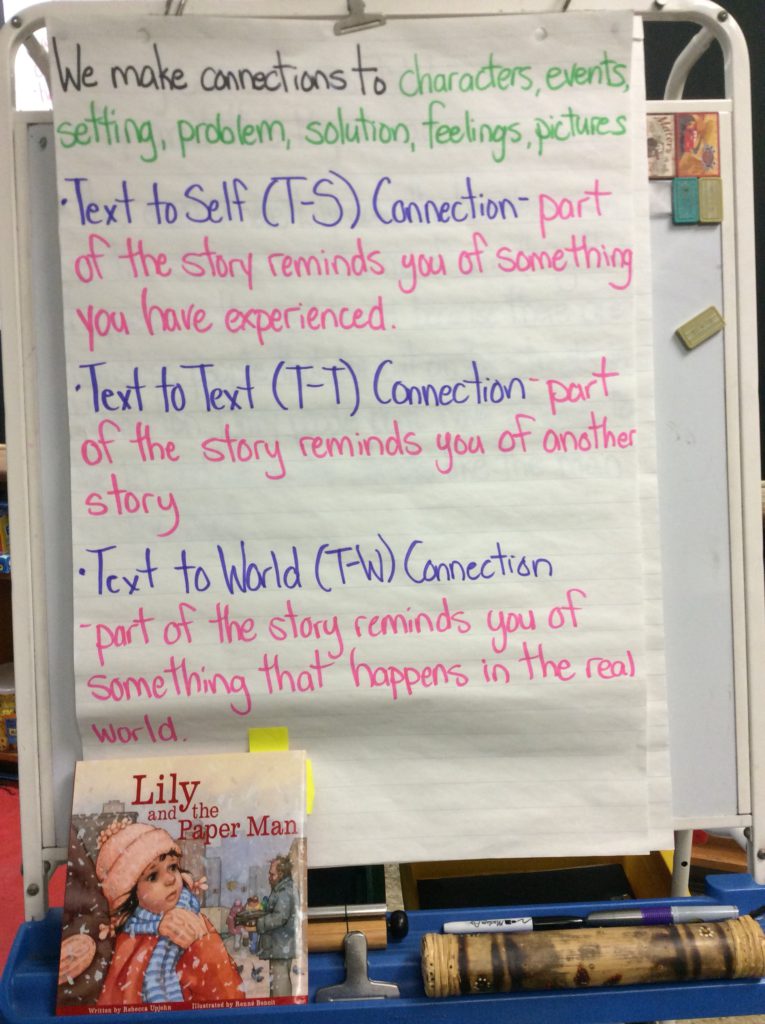 We make connections to characters, events,
setting, problem, solution, feelings, pictures
• Text to Self (T-S) Connection- part
of the story reminds you of something
you have experienced.
• Text to Text (T-T) Connection- part
of the story reminds you of another
story
• Text to World (T-W) Connection
-part of the story reminds you of
something that happens in the real
world.
Lily
and the
Paper Man
Written by Rebecca Upjohn Illustrated by Renné Benoit